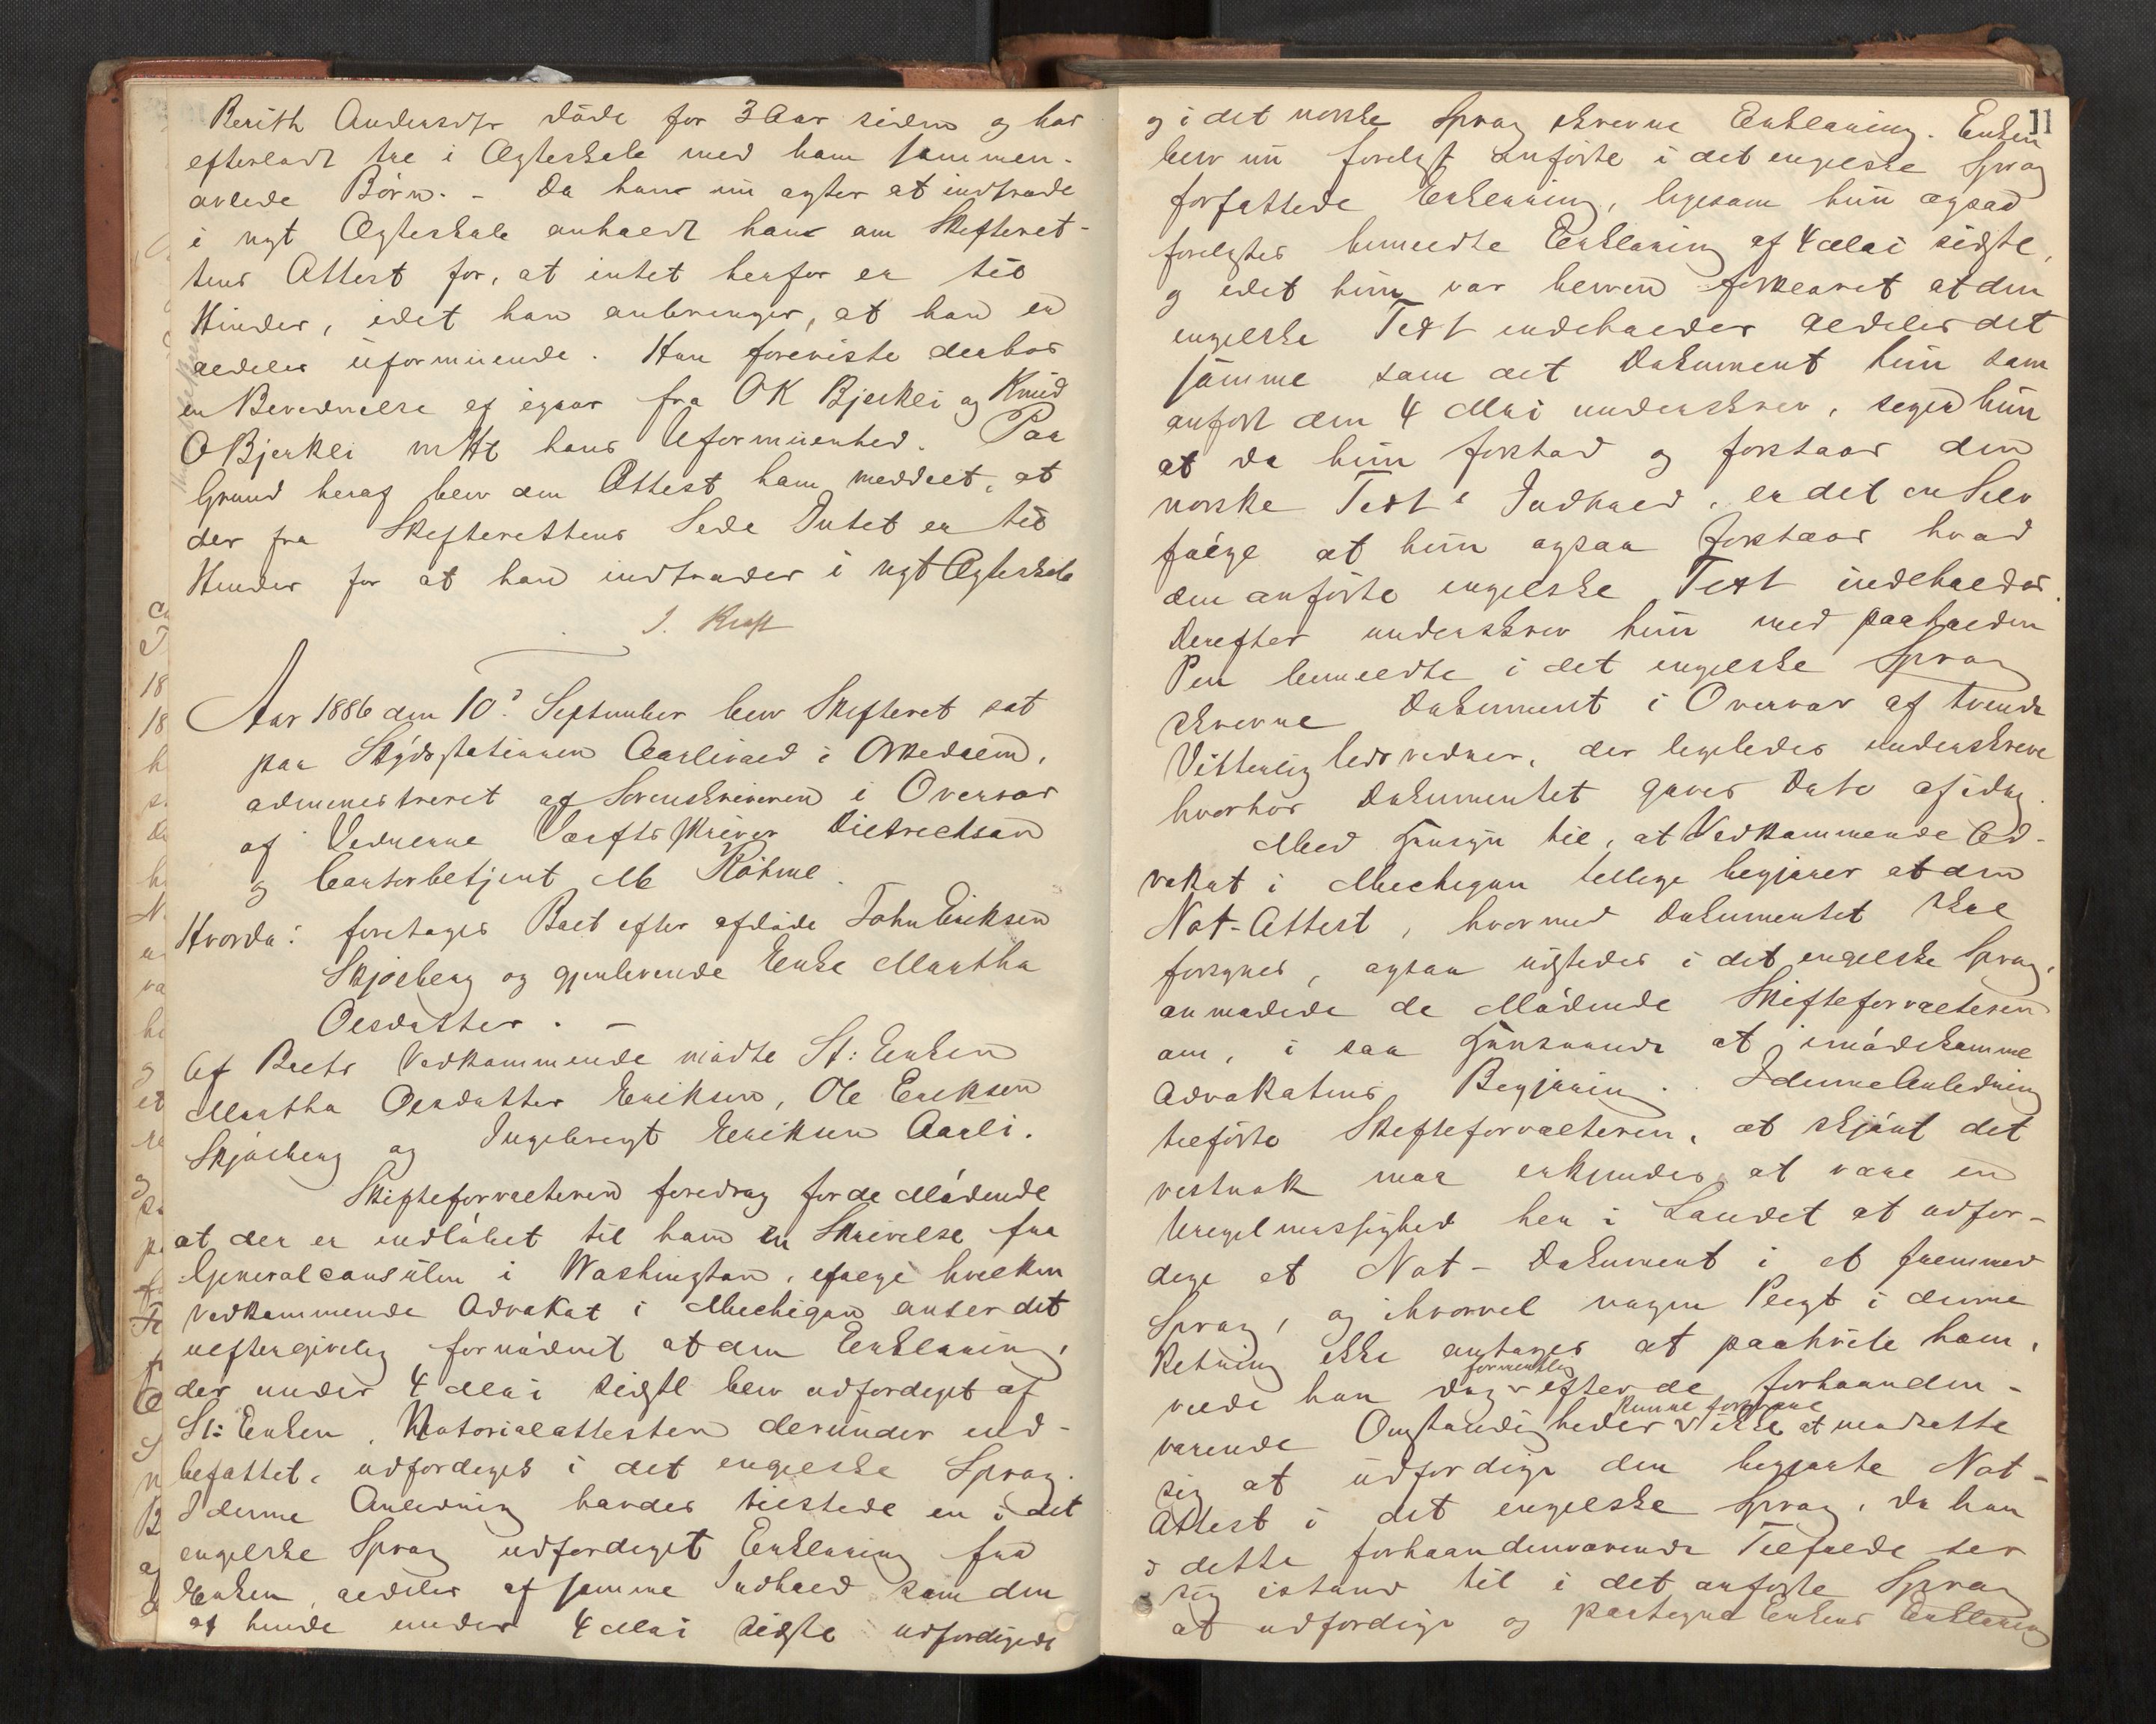 Berith Andersdtr døde for 3 Aar siden og har
efterladt tre i Ægteskab med ham sammen-
avlede Børn. - Da han nu agter at indtræde
i nyt Ægteskab anholdt han om Skifteret-
tens Attest for, at intet herfor er til
Hinder, idet han anbringer, at han er
aldeles uformuende. Han foreviste derhos
en Bevidnelse af igaar fra OK Bjerkli og Knud
O Bjerkli om hans Uformuenhed. Paa
Grund heraf blev den Attest ham meddelt, at
der fra Skifterettens Side Intet er til
Hinder for at han indtræder i nyt Ægteskab
J. Kraft
Aar 1886 den 10de September blev Skifteret sat
paa Skydsstationen Aarlivold i Orkedalen,
administreret af Sorenskriveren i Overvær
af Vidnerne Værftsskriver Dietrichson
og Contorbetjent M Röhme.
Hvorda: foretoges Boet efter afdøde John Eriksen
Skjøtberg og gjenlevende Enke Martha
Olsdatter. -
Af Boets Vedkommende mødte St: Enken
Martha Olsdatter Eriksen, Ole Eriksen
Skjøtberg og Ingebrigt Eriksen Aarli.
Skifteforvalteren foredrog for de Mødende
at der er indløbet til ham en Skrivelse fra
Generalconsulen i Washington, ifølge hvilken
vedkommende Advokat i Mechigan anser det
ueftergivelig fornødent at den Erklæring,
der under 4 Mai sidstl blev udfærdiget af
St: Enken, Notorialattesten derunder ind-
befattet, udfærdiges i det engelske Sprog.
I denne Anledning havdes tilstede en i det
engelske Sprog udfærdiget Erklæring fra
Enken, aldeles af samme Indhold som den
af hende under 4 Mai sidstl udfærdigede
11
og i det norske Sprog skrevne Erklæring. Enken
blev nu forelagt anførte i det engelske Sprog
forfattede Erklæring, ligesom hun ogsaa
forelagdes bemeldte Erklæring af 4 Mai sidstl,
og idet hun var bleven forklaret at den
engelske Text indeholder aldeles det
samme som det Dokument hun som
anført den 4 Mai underskrev, siger hun
at da hun forstod og forstaar den
norske Texts Indhold, er det en Selv
følge at hun ogsaa forstaar hvad
den anførte engelske Text indeholder.
Derefter underskrev hun med paaholden
Pen bemeldte i det engelske Sprog
skrevne Dokument i Overvær af tvende
Vitterlighedsvidner, der ligeledes underskreve
hvorhos Dokumentet gaves Dato af idag.
Med Hensyn til, at Vedkommende Ad-
vokat i Mechigan tillige begjærer at den
Not-Attest, hvormed Dokumentet skal
forsynes, ogsaa udstedes i det engelske Sprog,
anmodede de Mødende Skifteforvalteren
om, i saa Henseende at imødekomme
Advokatens Begjæring. I denne Anledning
tilførte Skifteforvalteren, at skjønt det
vistnok maa erkjendes at være en
Uregelmæssighed her i Landet at udfær-
dige et Not-Dokument i et fremmed
Sprog, og ihvorvel nogen Pligt i denne
Retning ikke antages at paahvile ham,
vilde han dog formentlig efter de forhaanden-
værende Omstændigheder ikke kunne at modsætte
sig at udfærdige den begjærte Not-
Attest i det engelske Sprog, da han
i dette forhaandenværende Tilfælde ser
sig istand til i det anførte Sprog
at udfærdige og paategne Enkens Erklæring